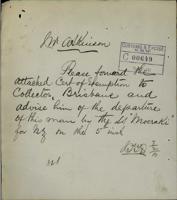 Mr Atkinson
C 00649
Please forward the
attached Cert of Exemption to
Collector, Brisbane and
advise him of the departure
of this man by the SS "Moeraki"
for NZ on the 5 inst